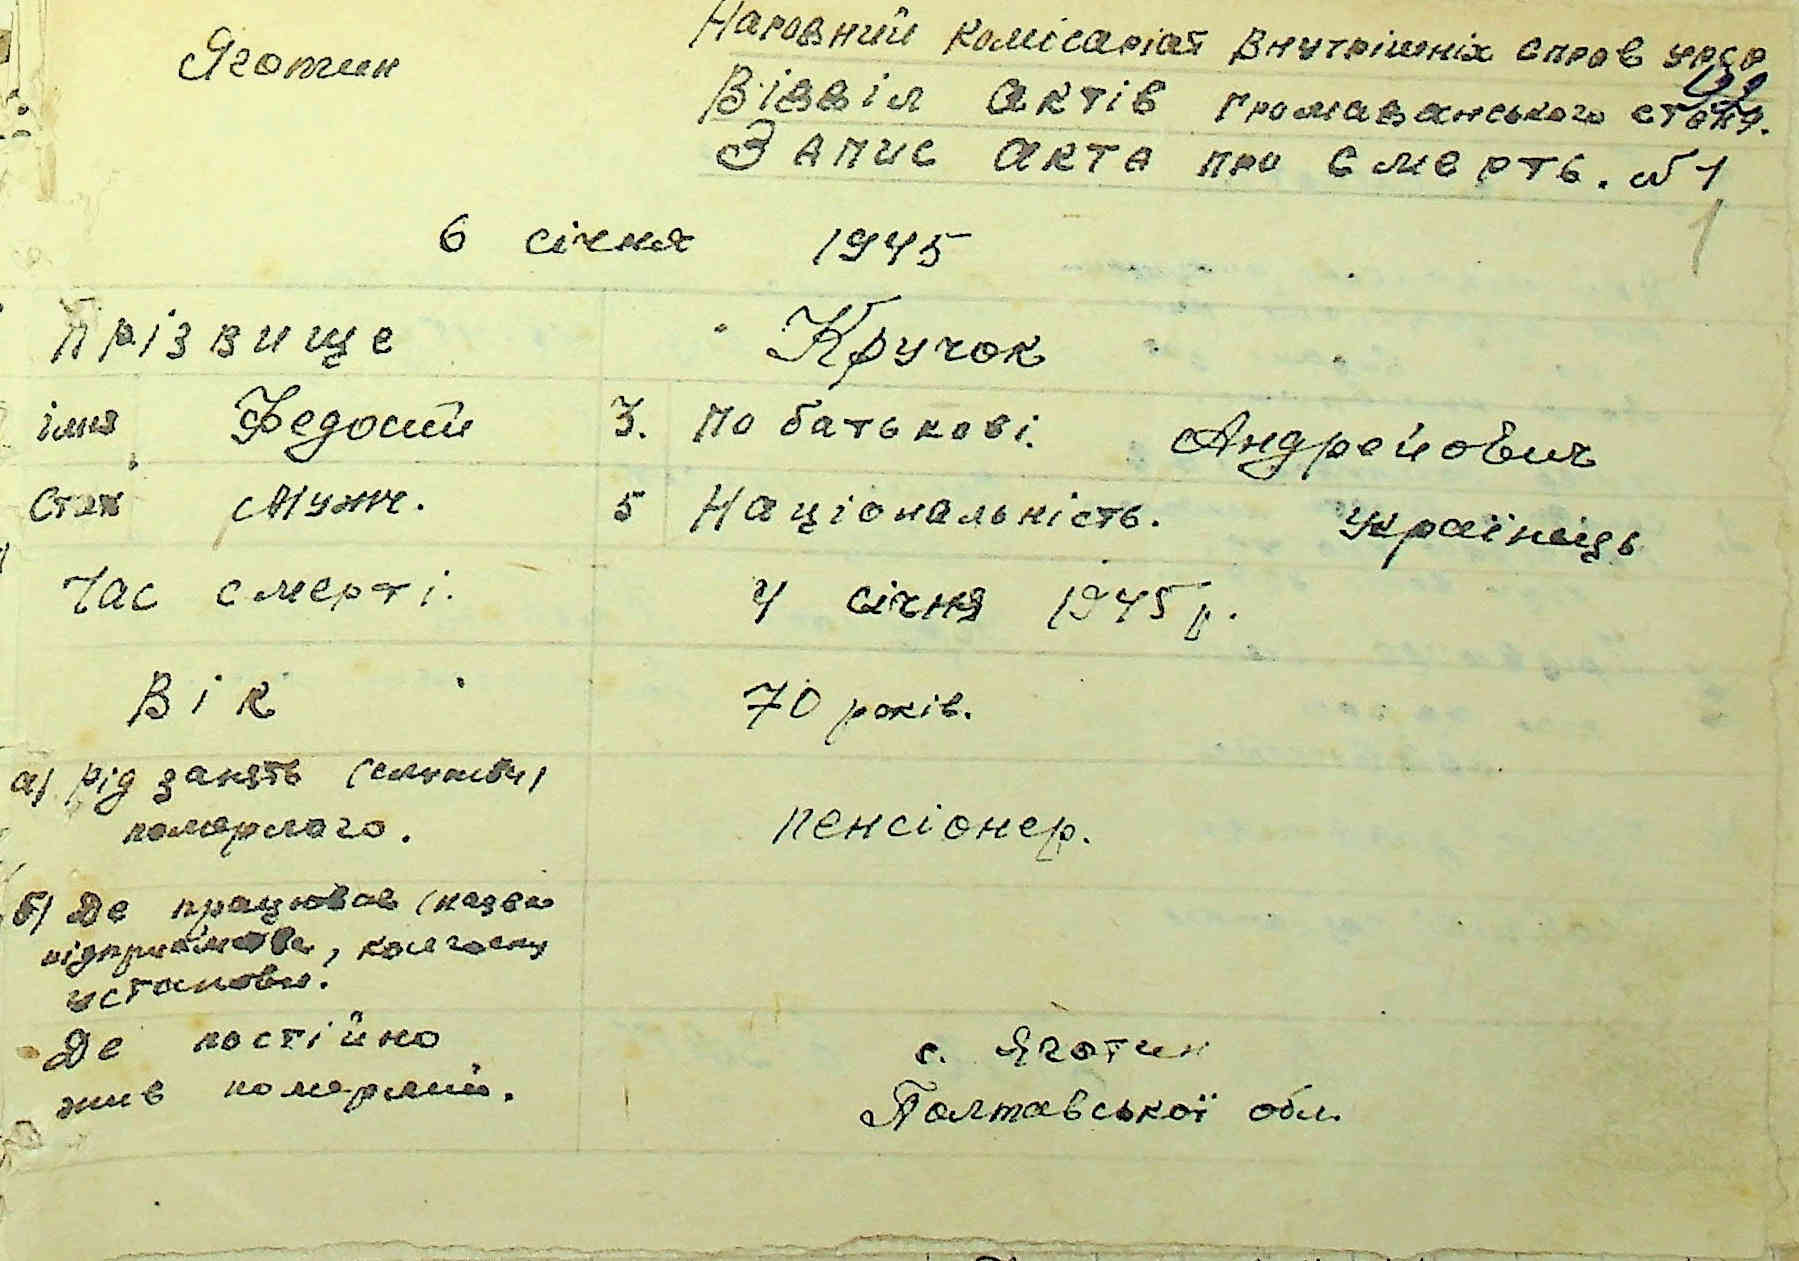 Яготин
Народний комісаріат внутрішніх справ УРСР
Відділ актів громадянського стану.
Запис акта про смерть. № 1
1
6 січня 1945
Прізвище Кручок
імя Федосій 3. По батькові. Андрейович
Стат Мужч. 5 Національність. Українець
Час смерті. 4 січня 1945 р.
Вік 70 років.
а) Рід занять (служби)
померлого. пенсіонер.
б) Де працював (назва
підприємства, колгоспу
установи.
Де постійно с. Яготин
жив померлий. Полтавської обл.